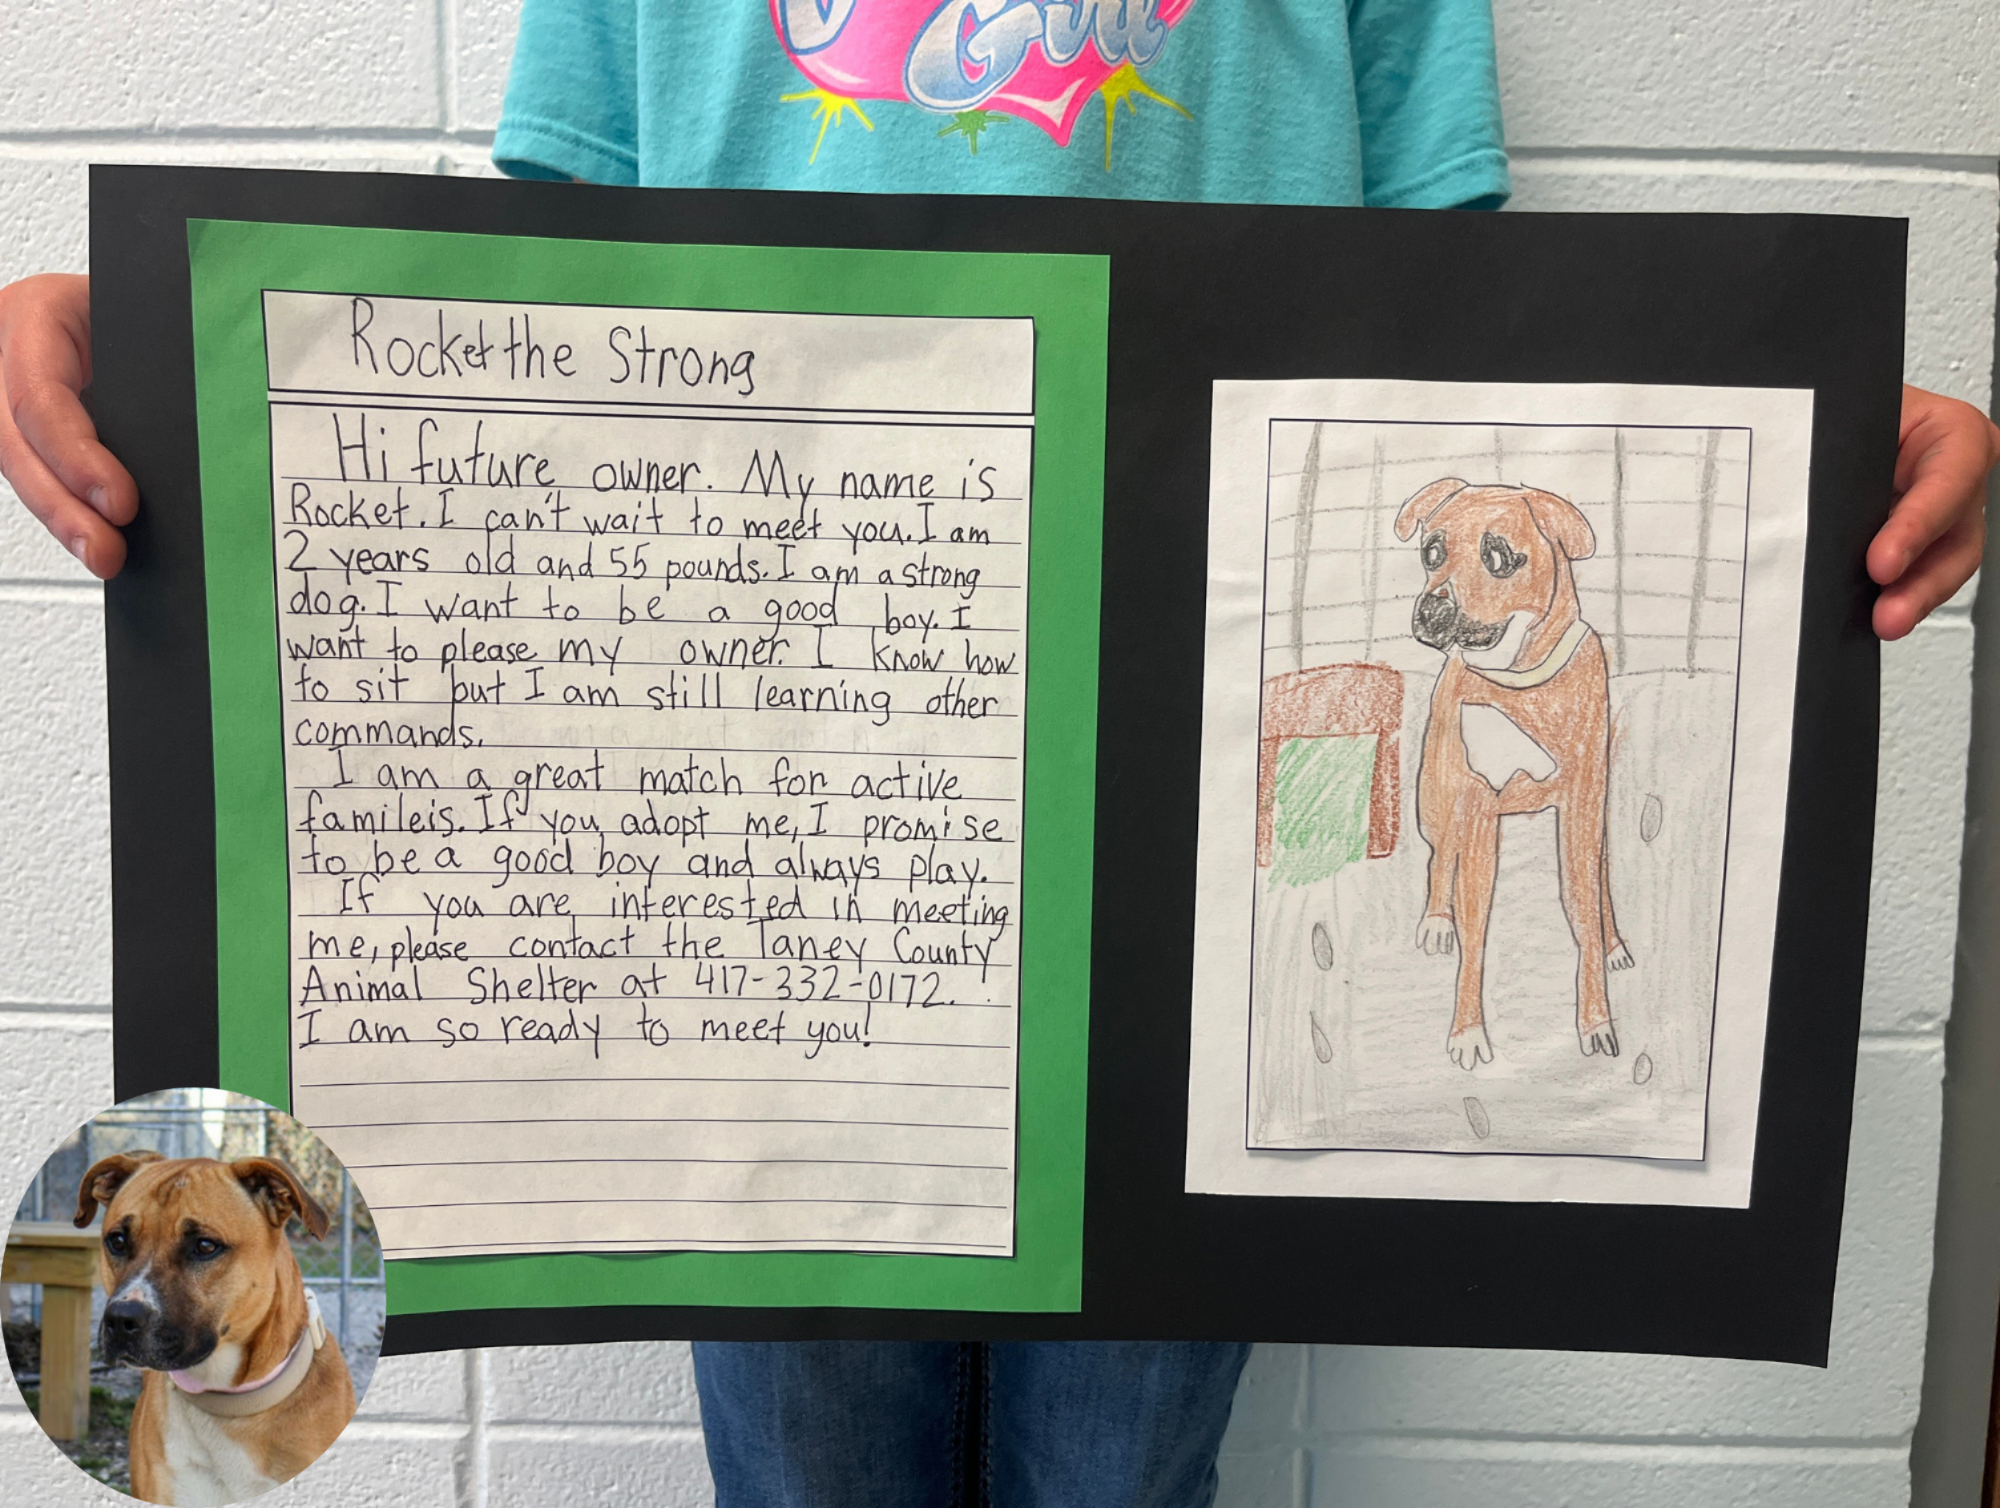 Girl
Rocket the Strong
Hi future owner. My name is
Rocket. I can't wait to meet you. I am
2 years old and 55 pounds. I am a strong
dog. I want to be a good boy. I
want to please my owner. I know how
to sit but I am still learning other
commands.
I am a great match for active
famileis. If you adopt me, I promise
to be a good boy and always play.
If you are interested in meeting
me, please contact the Taney County
Animal Shelter at 417-332-0172.
I am so ready to meet you!